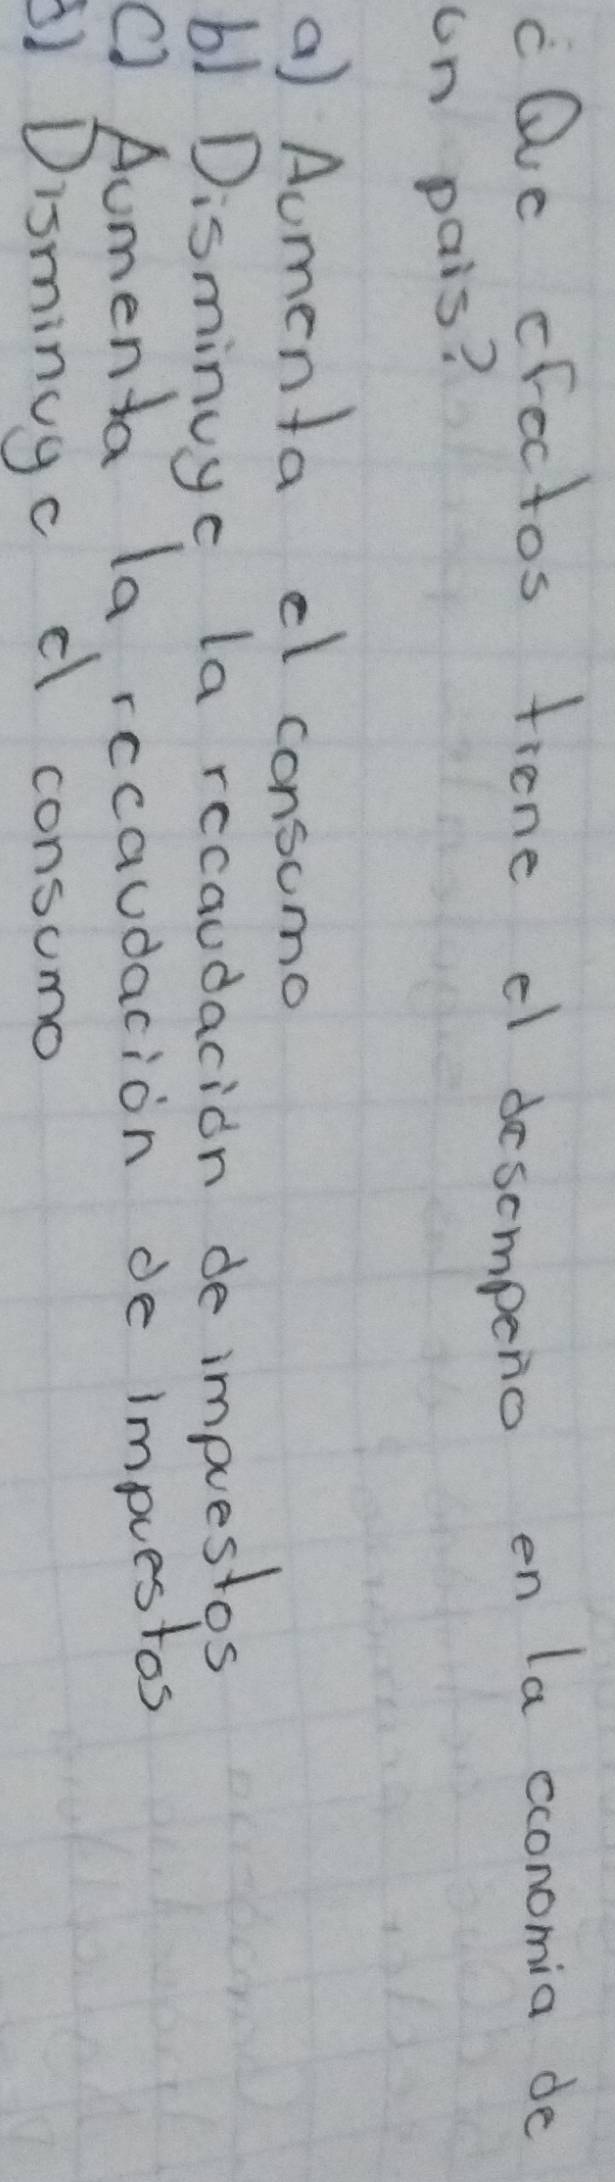 ¿Que efectos tiene el desempeño en la economia de
un pais?
a) Aumenta el consumo
b) Disminuye la recaudación de impuestos
c) Aumenta la recaudación de impuestos
d) Disminuye el consumo